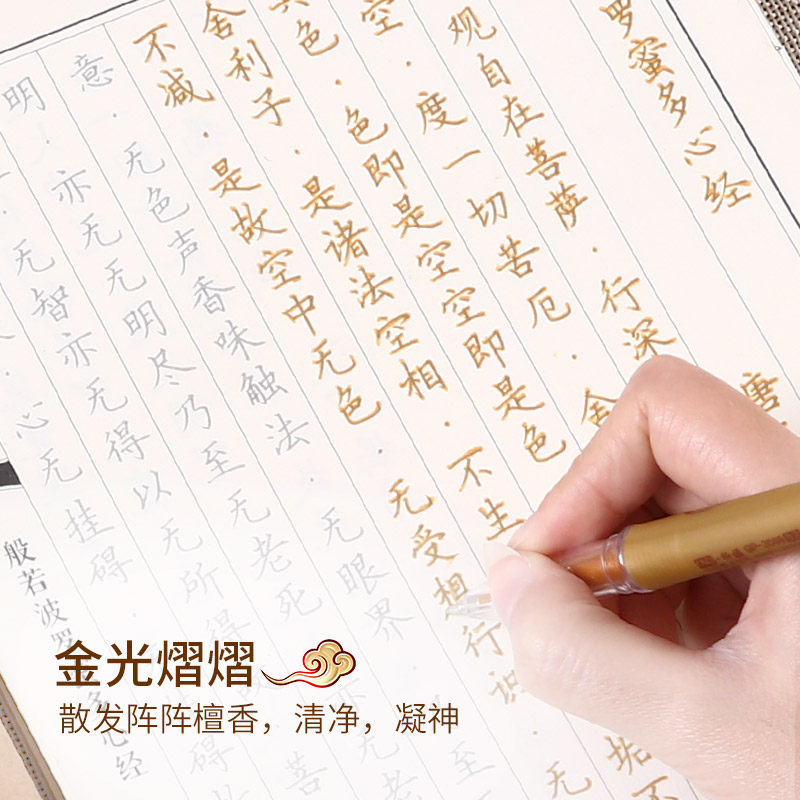 罗蜜多心经
唐
观自在菩萨·行深
空·度一切苦厄·舍
色·色即是空空即是色
舍利子·是诸法空相·不生
垢不
不减·是故空中无色·无受相行识·无
意·无色声香味触法·无眼界·
至
明·亦无无明尽乃至无老死·亦无老
无智亦无得以无所得故
菩
心无挂碍·
般若波罗
多心经
金光熠熠
散发阵阵檀香，清净，凝神